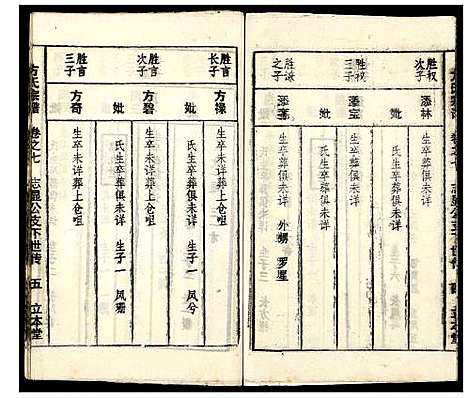 胜权次子
添林
生卒未详
妣
氏生卒葬俱未详
胜权三子
添宝
生卒葬俱未详
妣
氏生卒葬俱未详
胜谅之子
生卒葬俱未详 外甥 罗星
胜言长子
方禄
生卒未详葬上仓咀
妣
氏生卒葬俱未详 生子一 凤兮
胜言次子
方碧
生卒未详葬上仓咀
妣
氏生卒葬俱未详 生子一 凤珊
胜言三子
方奇
生卒未详葬上仓咀
方氏宗谱 卷之七 志显公支下世传 五 立本堂